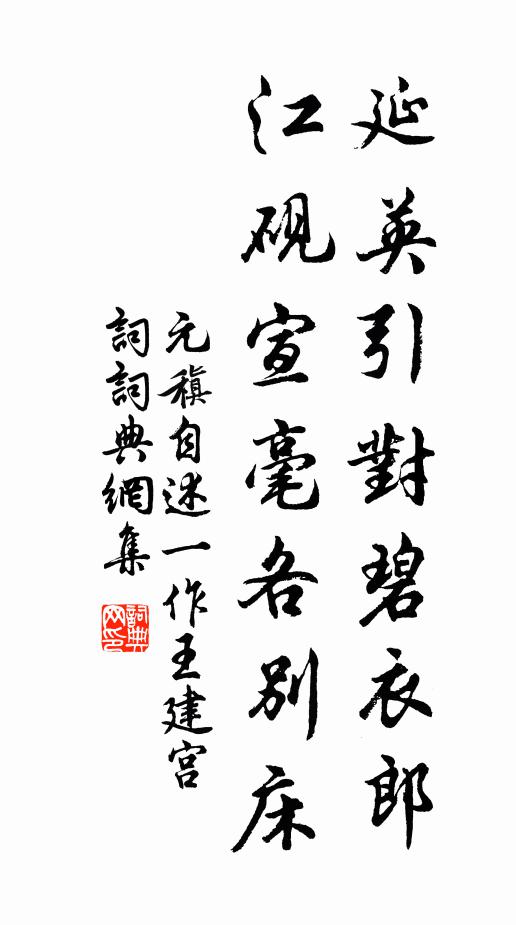 延英引對碧衣郎
江硯宣毫各別床
元稹自述一作王建宮
詞詞典網集
詞典网印